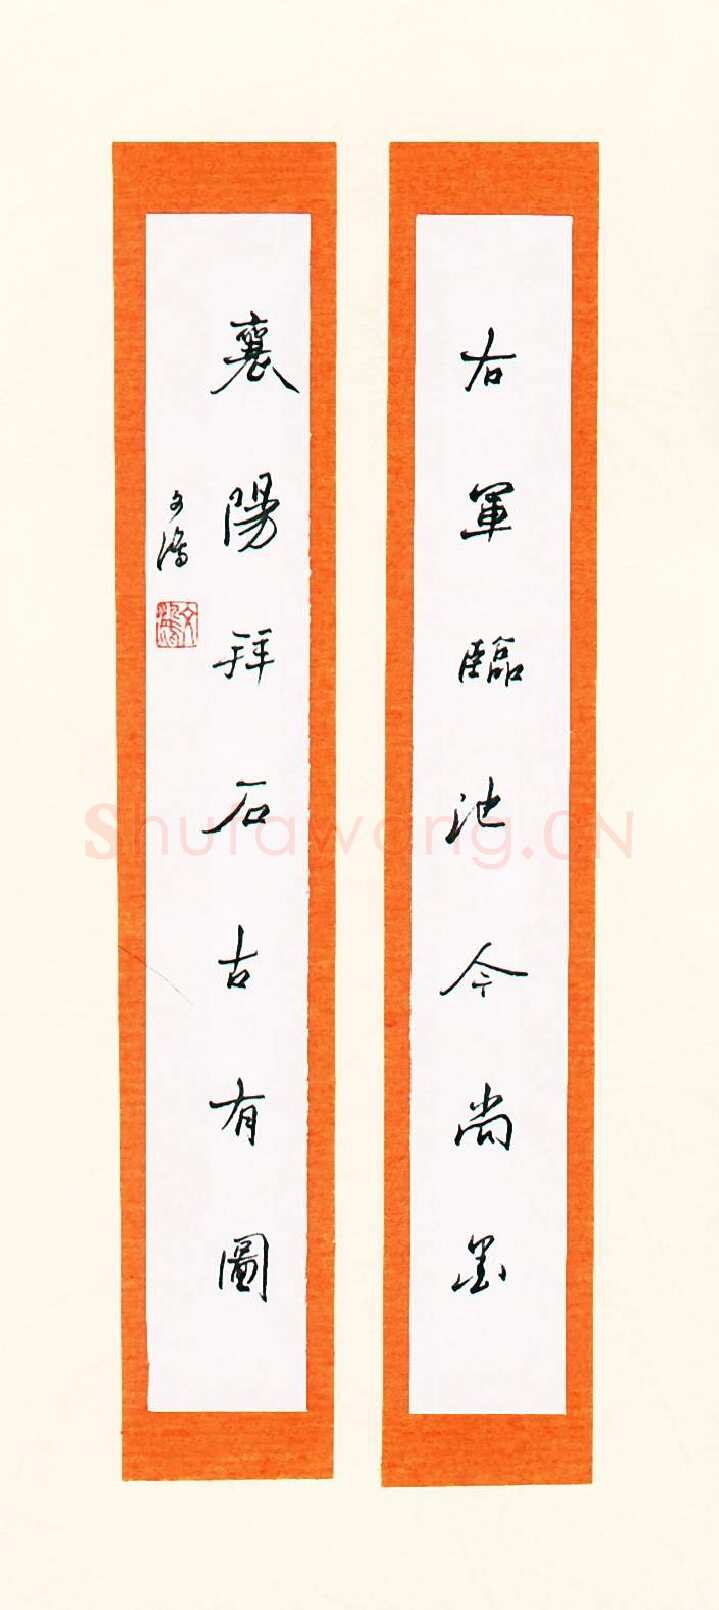 右軍臨池今尚墨
襄陽拜石古有圖
Shufawang.CN